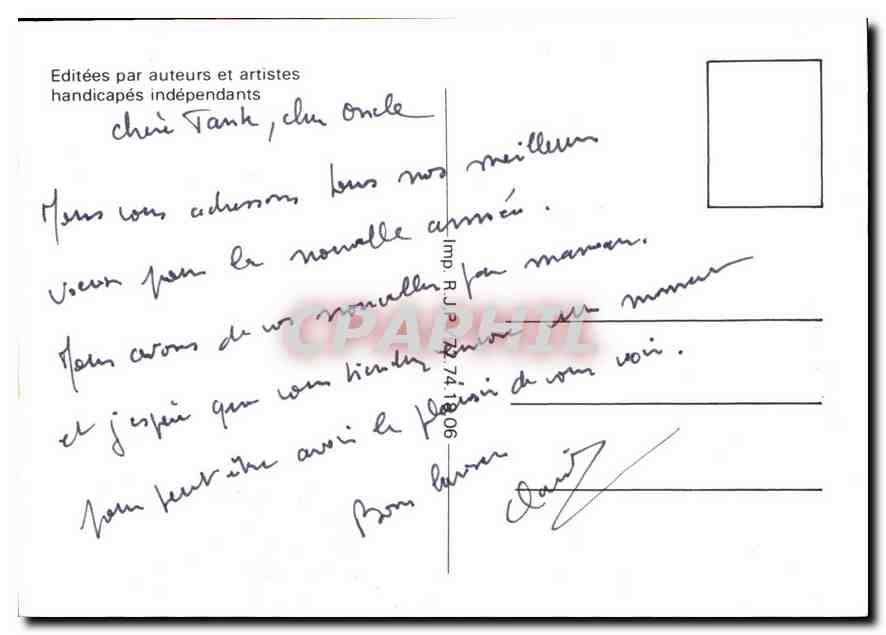 Editées par auteurs et artistes
handicapés indépendants
Chère Tante, cher Oncle
Nous vous adressons tous nos meilleurs
voeux pour la nouvelle année.
Nous avons de vos nouvelles par maman.
et j'espère que vous viendrez encore un moment
pour peut être avoir le plaisir de vous voir.
Bons baisers
Imp. R.J.P. 72.74.
CPAPHIL